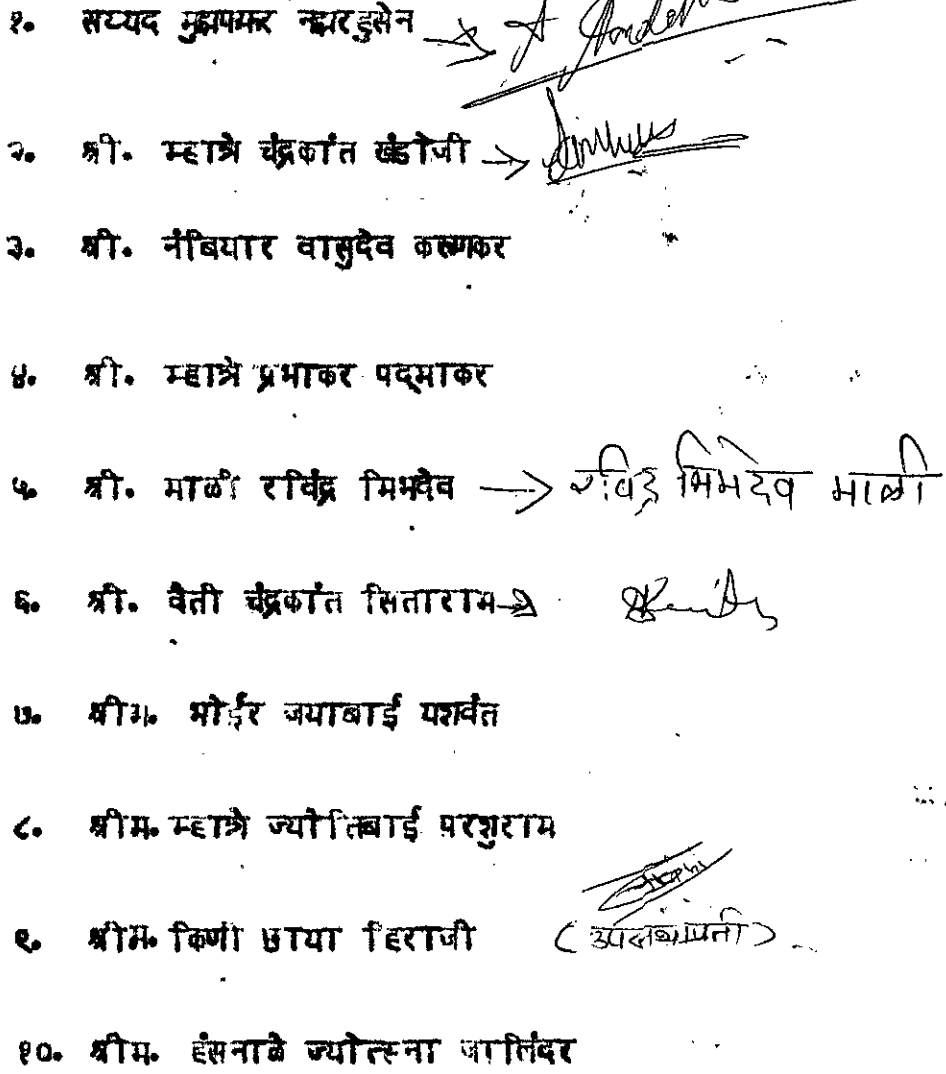 १. सय्यद मुझफ्फर नझरहुसेन →
२. श्री. म्हात्रे चंद्रकांत खंडोजी →
३. श्री. नंबियार वासुदेव
४. श्री. म्हात्रे प्रभाकर पद्माकर
५. श्री. माळी रविंद्र भिमदेव → रविंद्र भिमदेव माळी
६. श्री. वैती चंद्रकांत सिताराम →
७. श्रीम. भोईर जयाबाई यशवंत
८. श्रीम. म्हात्रे ज्योतिबाई परशुराम
९. श्रीम. किणी छाया हिराजी (उपसभापती)
१०. श्रीम. हंसनाळे ज्योत्स्ना जालिंदर